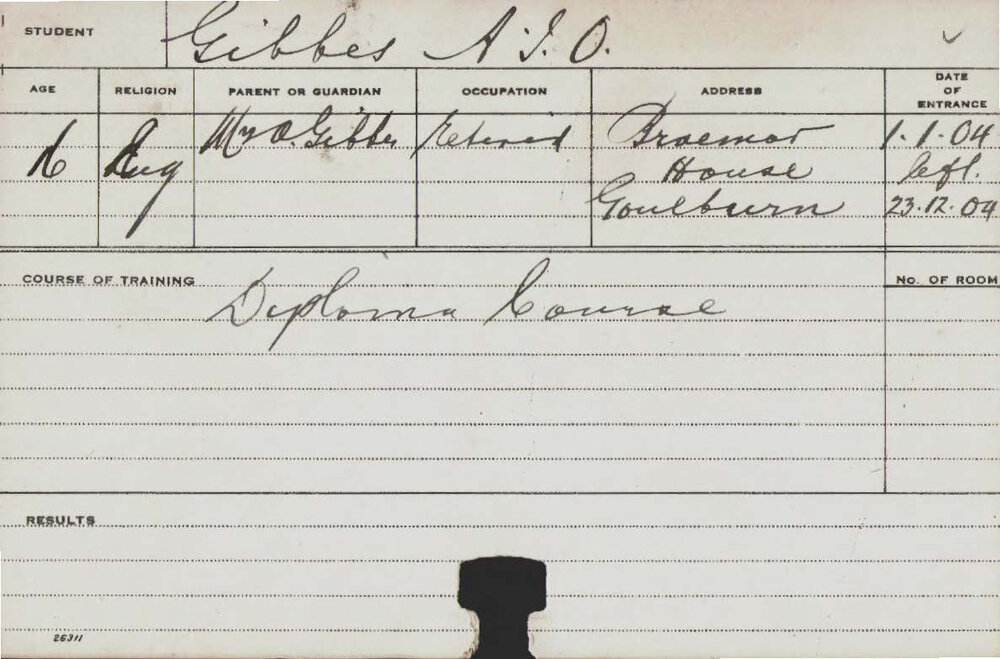 STUDENT Gibbes A.J.O.
AGE RELIGION PARENT OR GUARDIAN OCCUPATION ADDRESS DATE OF ENTRANCE
16 Ang Mr O. Gibbes Retired Braemar 1.1.04
House left.
Goulburn 23.12.04
COURSE OF TRAINING Diploma Course No. OF ROOM
RESULTS
26311